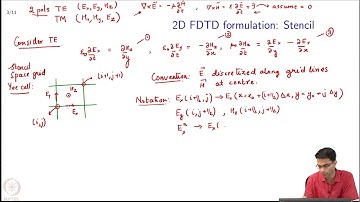 3/11
2 pols TE (Ex, Ey, Hz)
TM (Hx, Hy, Ez)
∇×E = -μ ∂H/∂t, ∇×H = ε ∂E/∂t + J → assume = 0
2D FDTD formulation: Stencil
Consider TE
ε₀ ∂Ex/∂t = ∂Hz/∂y ①, ε₀ ∂Ey/∂t = -∂Hz/∂x ②, μ ∂Hz/∂t = ∂Ex/∂y - ∂Ey/∂x ③
Stencil
Space grid
Yee cell:
(i+1, j+1)
Ey Hz
Ex
(i,j)
Convention: E discretized along grid lines
H at centre.
Notation: Ex(i+½, j) → Ex(x = x₀ + (i+½)Δx, y = y₀ + jΔy)
Ey(i, j+½), Hz(i+½, j+½)
→ Ex(
NPTEL